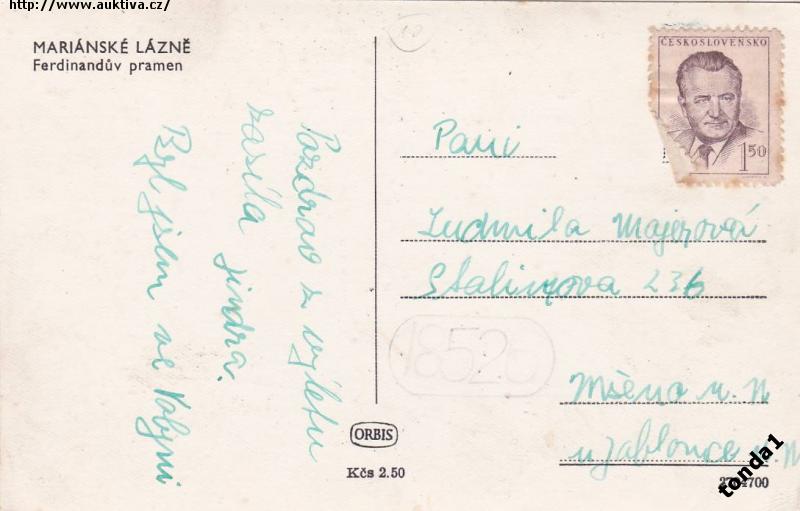 http://www.auktiva.cz/
MARIÁNSKÉ LÁZNĚ
Ferdinandův pramen
Pozdrav z výletu
zasílá Jindra.
Byl jsem ve
10
ČESKOSLOVENSKO
1 50
Paní
Ludmila Majerová
Stalinova 236
Mšeno n. N
u Jablonce n. N
1852
ORBIS
Kčs 2.50
4700
tonda1